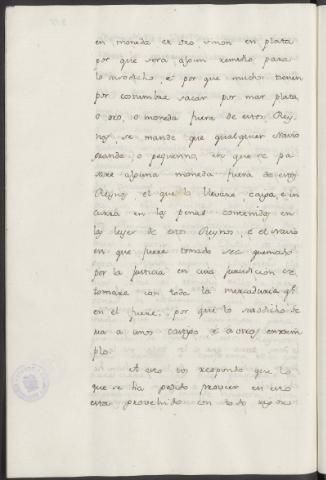 en moneda de oro vinon en plata
por que sera algun remedio para
lo susodicho, é por que muchos tienen
por costumbre sacar por mar plata,
o oro, o moneda fuera de estos Rey
nos, se mande que qualquier Navio
grande, o pequenno, en que se pa
sare alguna moneda fuera de estos
Reynos, el que la llevare, cayga, e in
curra en las penas contenidas en
las leyes de estos Reynos, é el Navio
en que fuere tomado sea quemado
por la Justicia en cuia jurisdicion se
tomare con toda la mercaduria qe.
en el fuere, por que lo susodicho se
ua a unos castigo é a otros enxem
plo.
A esto vos respondo que lo
que se ha pedido proveer en esto
esta provehido con todo rigor